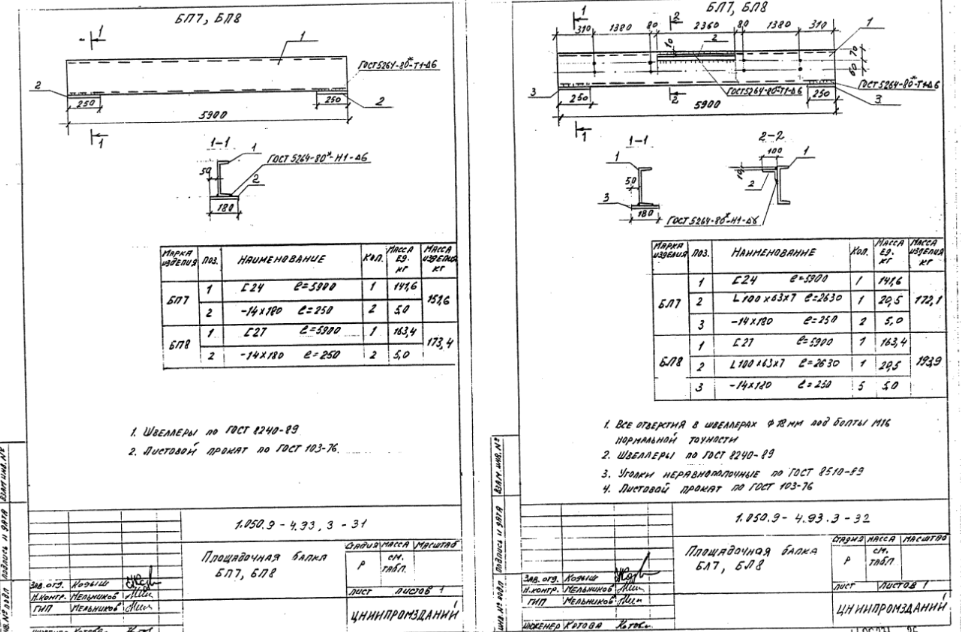 БП7, БП8
1
1
ГОСТ 5264-80*-Т1-Δ6
2
250
250
2
5900
1
1-1
1
ГОСТ 5264-80*-Н1-Δ6
50
2
180
МАРКА ИЗДЕЛИЯ ПОЗ. НАИМЕНОВАНИЕ КОЛ. МАССА ЕД. КГ МАССА ИЗДЕЛИЯ КГ
БП7 1 [24 ℓ=5900 1 141,6 151,6
2 -14×180 ℓ=250 2 5,0
БП8 1 [27 ℓ=5900 1 163,4 173,4
2 -14×180 ℓ=250 2 5,0
1. ШВЕЛЛЕРЫ ПО ГОСТ 8240-89
2. ЛИСТОВОЙ ПРОКАТ ПО ГОСТ 103-76.
1.050.9-4.93.3-31
ПЛОЩАДОЧНАЯ БАЛКА
БП7, БП8
СТАДИЯ МАССА МАСШТАБ
Р СМ. ТАБЛ.
ЛИСТ ЛИСТОВ 1
ЗАВ. ОТД. КОДЫШ
Н.КОНТР. МЕЛЬНИКОВ
ГИП МЕЛЬНИКОВ
ЦНИИПРОМЗДАНИЙ
БП7, БП8
1
2
310 1380 80 2360 80 1380 310
1
10
2
70
60
ГОСТ 5264-80*-Т1-Δ6
ГОСТ 5264-80*-Т1-Δ6
3
250
2
250
3
5900
1
1-1
2-2
1
50
3
180
100
1
10
2
ГОСТ 5264-80*-Н1-Δ6
МАРКА ИЗДЕЛИЯ ПОЗ. НАИМЕНОВАНИЕ КОЛ. МАССА ЕД. КГ МАССА ИЗДЕЛИЯ КГ
БП7 1 [24 ℓ=5900 1 141,6 172,1
2 L100×63×7 ℓ=2630 1 20,5
3 -14×180 ℓ=250 2 5,0
БП8 1 [27 ℓ=5900 1 163,4 193,9
2 L100×63×7 ℓ=2630 1 20,5
3 -14×180 ℓ=250 5 5,0
1. ВСЕ ОТВЕРСТИЯ В ШВЕЛЛЕРАХ Ф 18 ММ ПОД БОЛТЫ М16
НОРМАЛЬНОЙ ТОЧНОСТИ
2. ШВЕЛЛЕРЫ ПО ГОСТ 8240-89
3. УГОЛКИ НЕРАВНОПОЛОЧНЫЕ ПО ГОСТ 8510-89
4. ЛИСТОВОЙ ПРОКАТ ПО ГОСТ 103-76
1.050.9-4.93.3-32
ПЛОЩАДОЧНАЯ БАЛКА
БП7, БП8
СТАДИЯ МАССА МАСШТАБ
Р СМ. ТАБЛ.
ЛИСТ ЛИСТОВ 1
ЗАВ. ОТД. КОДЫШ
Н.КОНТР. МЕЛЬНИКОВ
ГИП МЕЛЬНИКОВ
ИНЖЕНЕР КОТОВА
ЦНИИПРОМЗДАНИЙ